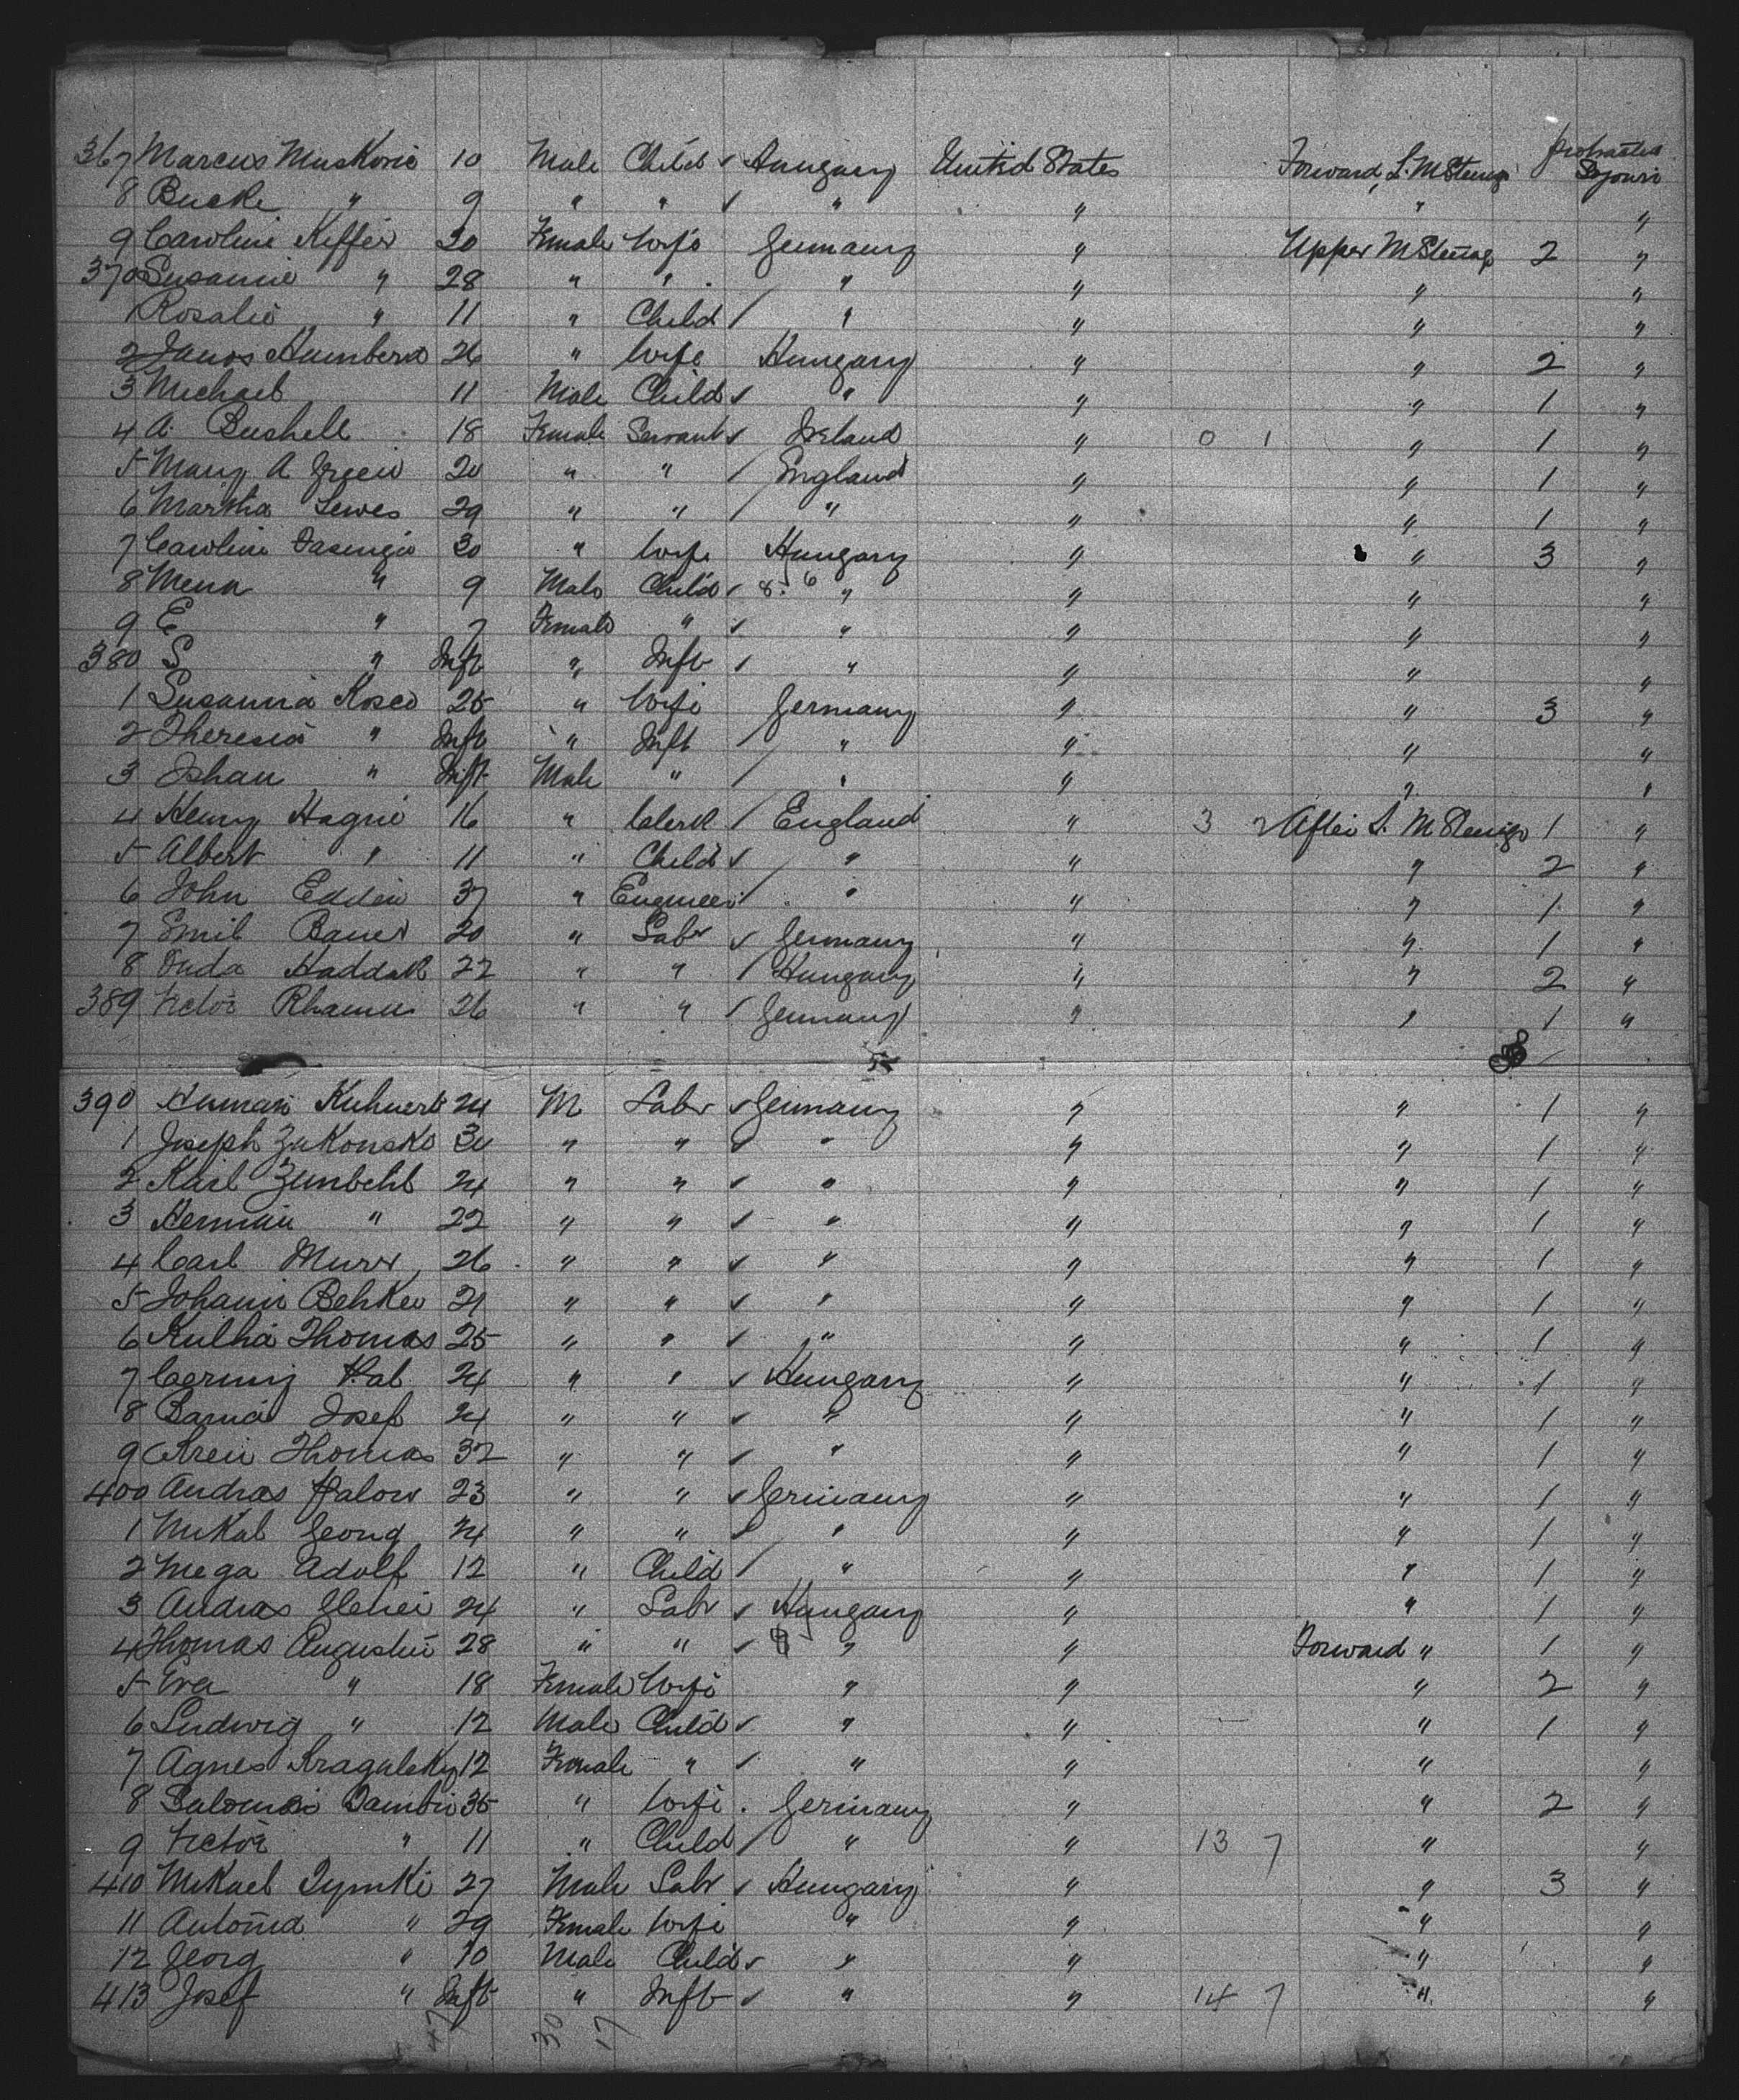 protracted
367 Marcus Muskovic 10 Male Child ✓ Hungary United States Forward, L. M Steerage Sojourn
8 Buske " 9 " " ✓ " " " "
9 Caroline Keffer 30 Female Wife Germany " Upper M Steerage 2 "
370 Susanne " 28 " " " " " "
1 Rosalie " 11 " Child / " " " "
2 Janos Humbera 26 " Wife Hungary " " 2 "
3 Michael 11 Male Child ✓ " " " 1 "
4 A. Bushell 18 Female Servant ✓ Ireland " 0 1 " 1 "
5 Mary A Green 20 " " / England " " 1 "
6 Martha Lewes 29 " " / " " " 1 "
7 Caroline Fasengio 30 " Wife Hungary " " 3 "
8 Mena " 9 Male Child ✓ 8. 6 " " " "
9 E " 7 Female " ✓ " " " "
380 S " Inft " Inft ✓ " " " "
1 Susanna Kosco 25 " Wife Germany " " 3 "
2 Theresia " Inft " Inft / " " " "
3 Johan " Inft Male " / " " " "
4 Henry Hagne 16 " Clerk / England " 3 2 After L. M Steerage 1 "
5 Albert " 11 " Child ✓ " " " 2 "
6 John Edden 37 " Engineer / " " " 1 "
7 Emil Bauer 20 " Labr ✓ Germany " " 1 "
8 Duda Haddak 22 " " / Hungary " " 2 "
389 Victor Rhamu 26 " " ✓ Germany " " 1 "
390 Human Kuhnert 24 M Labr ✓ Germany " " 1 "
1 Joseph Zukonsko 30 " " ✓ " " " 1 "
2 Karl Zumbehl 24 " " ✓ " " " 1 "
3 Herman " 22 " " ✓ " " " 1 "
4 Carl Murr 26 " " ✓ " " " 1 "
5 Johann Behker 21 " " ✓ " " " 1 "
6 Kulha Thomas 25 " " ✓ " " " 1 "
7 Cerning Pal 24 " " ✓ Hungary " " 1 "
8 Barna Josef 24 " " ✓ " " " 1 "
9 Krein Thomas 32 " " ✓ " " " 1 "
400 Andras Palow 23 " " ✓ Germany " " 1 "
1 Mikal Georg 24 " " ✓ " " " 1 "
2 Mega Adolf 12 " Child / " " " 1 "
3 Andras Elenei 24 " Labr ✓ Hungary " " 1 "
4 Thomas Augustin 28 " " ✓ " " Forward " 1 "
5 Eva " 18 Female Wife " " " 2 "
6 Ludwig " 12 Male Child ✓ " " " 1 "
7 Agnes Kragulsky 12 Female " ✓ " " " "
8 Salomon Dambi 35 " Wife Germany " " 2 "
9 Victor " 11 " Child / " " 13 7 " "
410 Mikael Tymki 27 Male Labr ✓ Hungary " " 3 "
11 Antonia " 29 Female Wife " " " "
12 Georg " 10 Male Child ✓ " " " "
413 Josef " Inft " Inft ✓ " " 14 7 " "
47 30 17